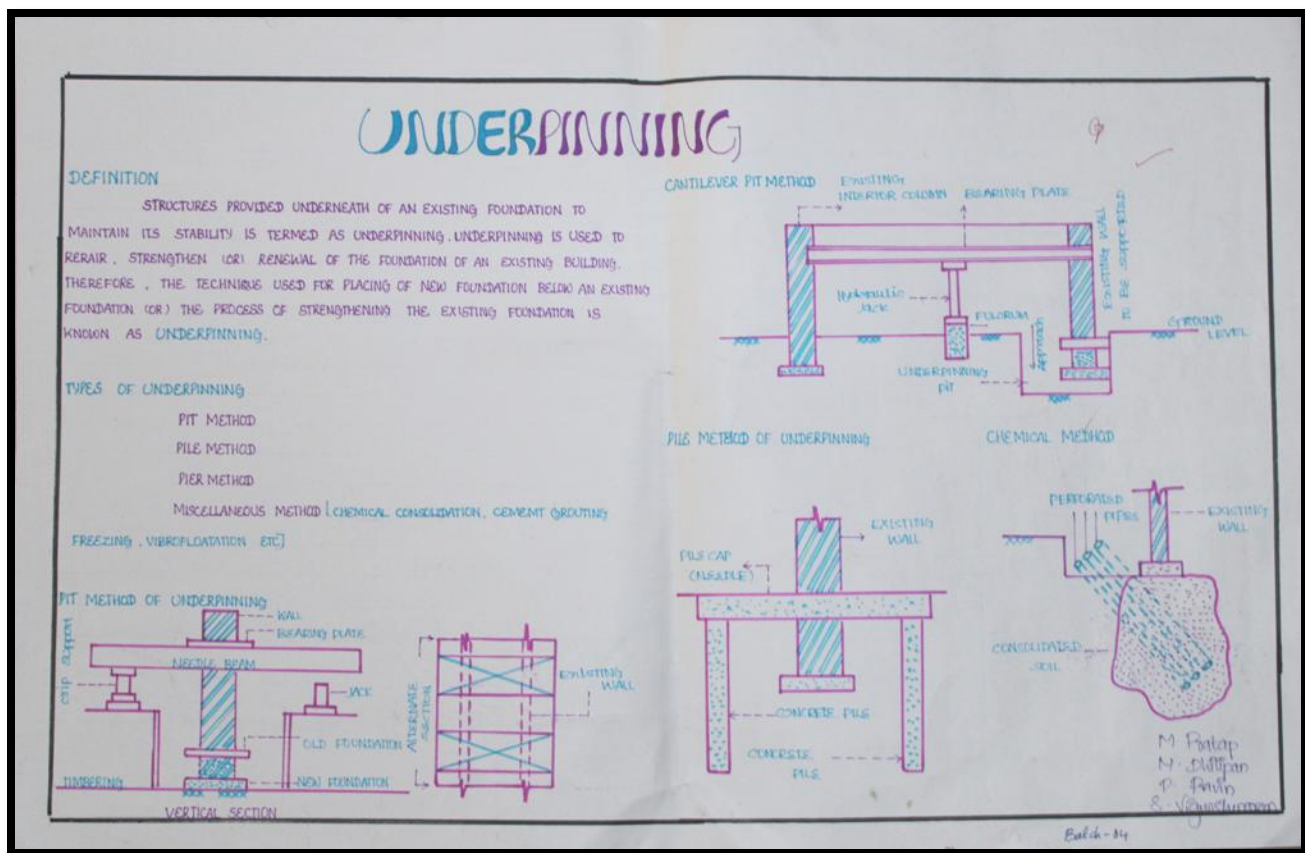 UNDERPINNING
DEFINITION
STRUCTURES PROVIDED UNDERNEATH OF AN EXISTING FOUNDATION TO
MAINTAIN ITS STABILITY IS TERMED AS UNDERPINNING. UNDERPINNING IS USED TO
RERAIR, STRENGTHEN (OR) RENEWAL OF THE FOUNDATION OF AN EXISTING BUILDING.
THEREFORE, THE TECHNIQUE USED FOR PLACING OF NEW FOUNDATION BELOW AN EXISTING
FOUNDATION (OR) THE PROCESS OF STRENGTHENING THE EXISTING FOUNDATION IS
KNOWN AS UNDERPINNING.
TYPES OF UNDERPINNING
PIT METHOD
PILE METHOD
PIER METHOD
MISCELLANEOUS METHOD [CHEMICAL CONSOLIDATION, CEMENT GROUTING
FREEZING, VIBROFLOATATION ETC]
PIT METHOD OF UNDERPINNING
WALL
BEARING PLATE
NEEDLE BEAM
SUPPORT
JACK
OLD FOUNDATION
NEW FOUNDATION
TIMBERING
VERTICAL SECTION
ALTERNATE
SECTION
EXISTING
WALL
CANTILEVER PIT METHOD
EXISTING
INTERIOR COLUMN
BEARING PLATE
EXISTING WALL
TO BE SUPPORTED
Hydraulic
Jack
FULCRUM
APPROACH
GROUND
LEVEL
UNDERPINNING
PIT
PILE METHOD OF UNDERPINNING
EXISTING
WALL
PILE CAP
(NEEDLE)
CONCRETE PILE
CONCRETE
PILE
CHEMICAL METHOD
PERFORATED
PIPES
EXISTING
WALL
CONSOLIDATED
SOIL
M. Pratap
P. Pavin
Batch-04